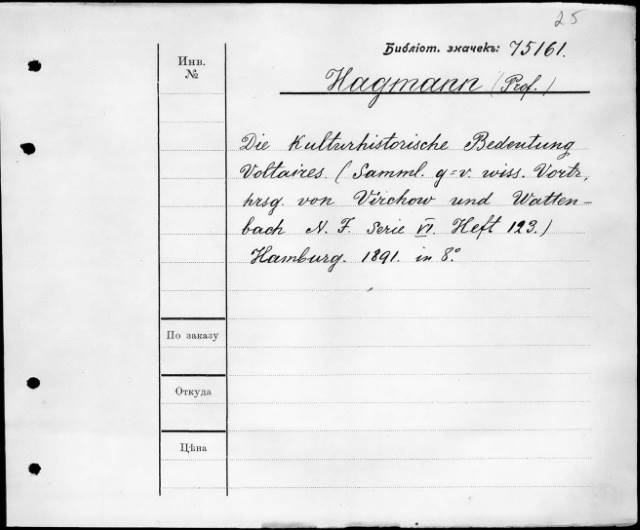 25
Библіот. значекъ: 75161.
Инв.
№
Hagmann (Prof.)
Die Kulturhistorische Bedeutung
Voltaires. (Samml. g=v. wiss. Vortr,
hrsg. von Virchow und Watten-
bach N. F. Serie VI. Heft 123.)
Hamburg. 1891. in 8.°
По заказу
Откуда
Цѣна